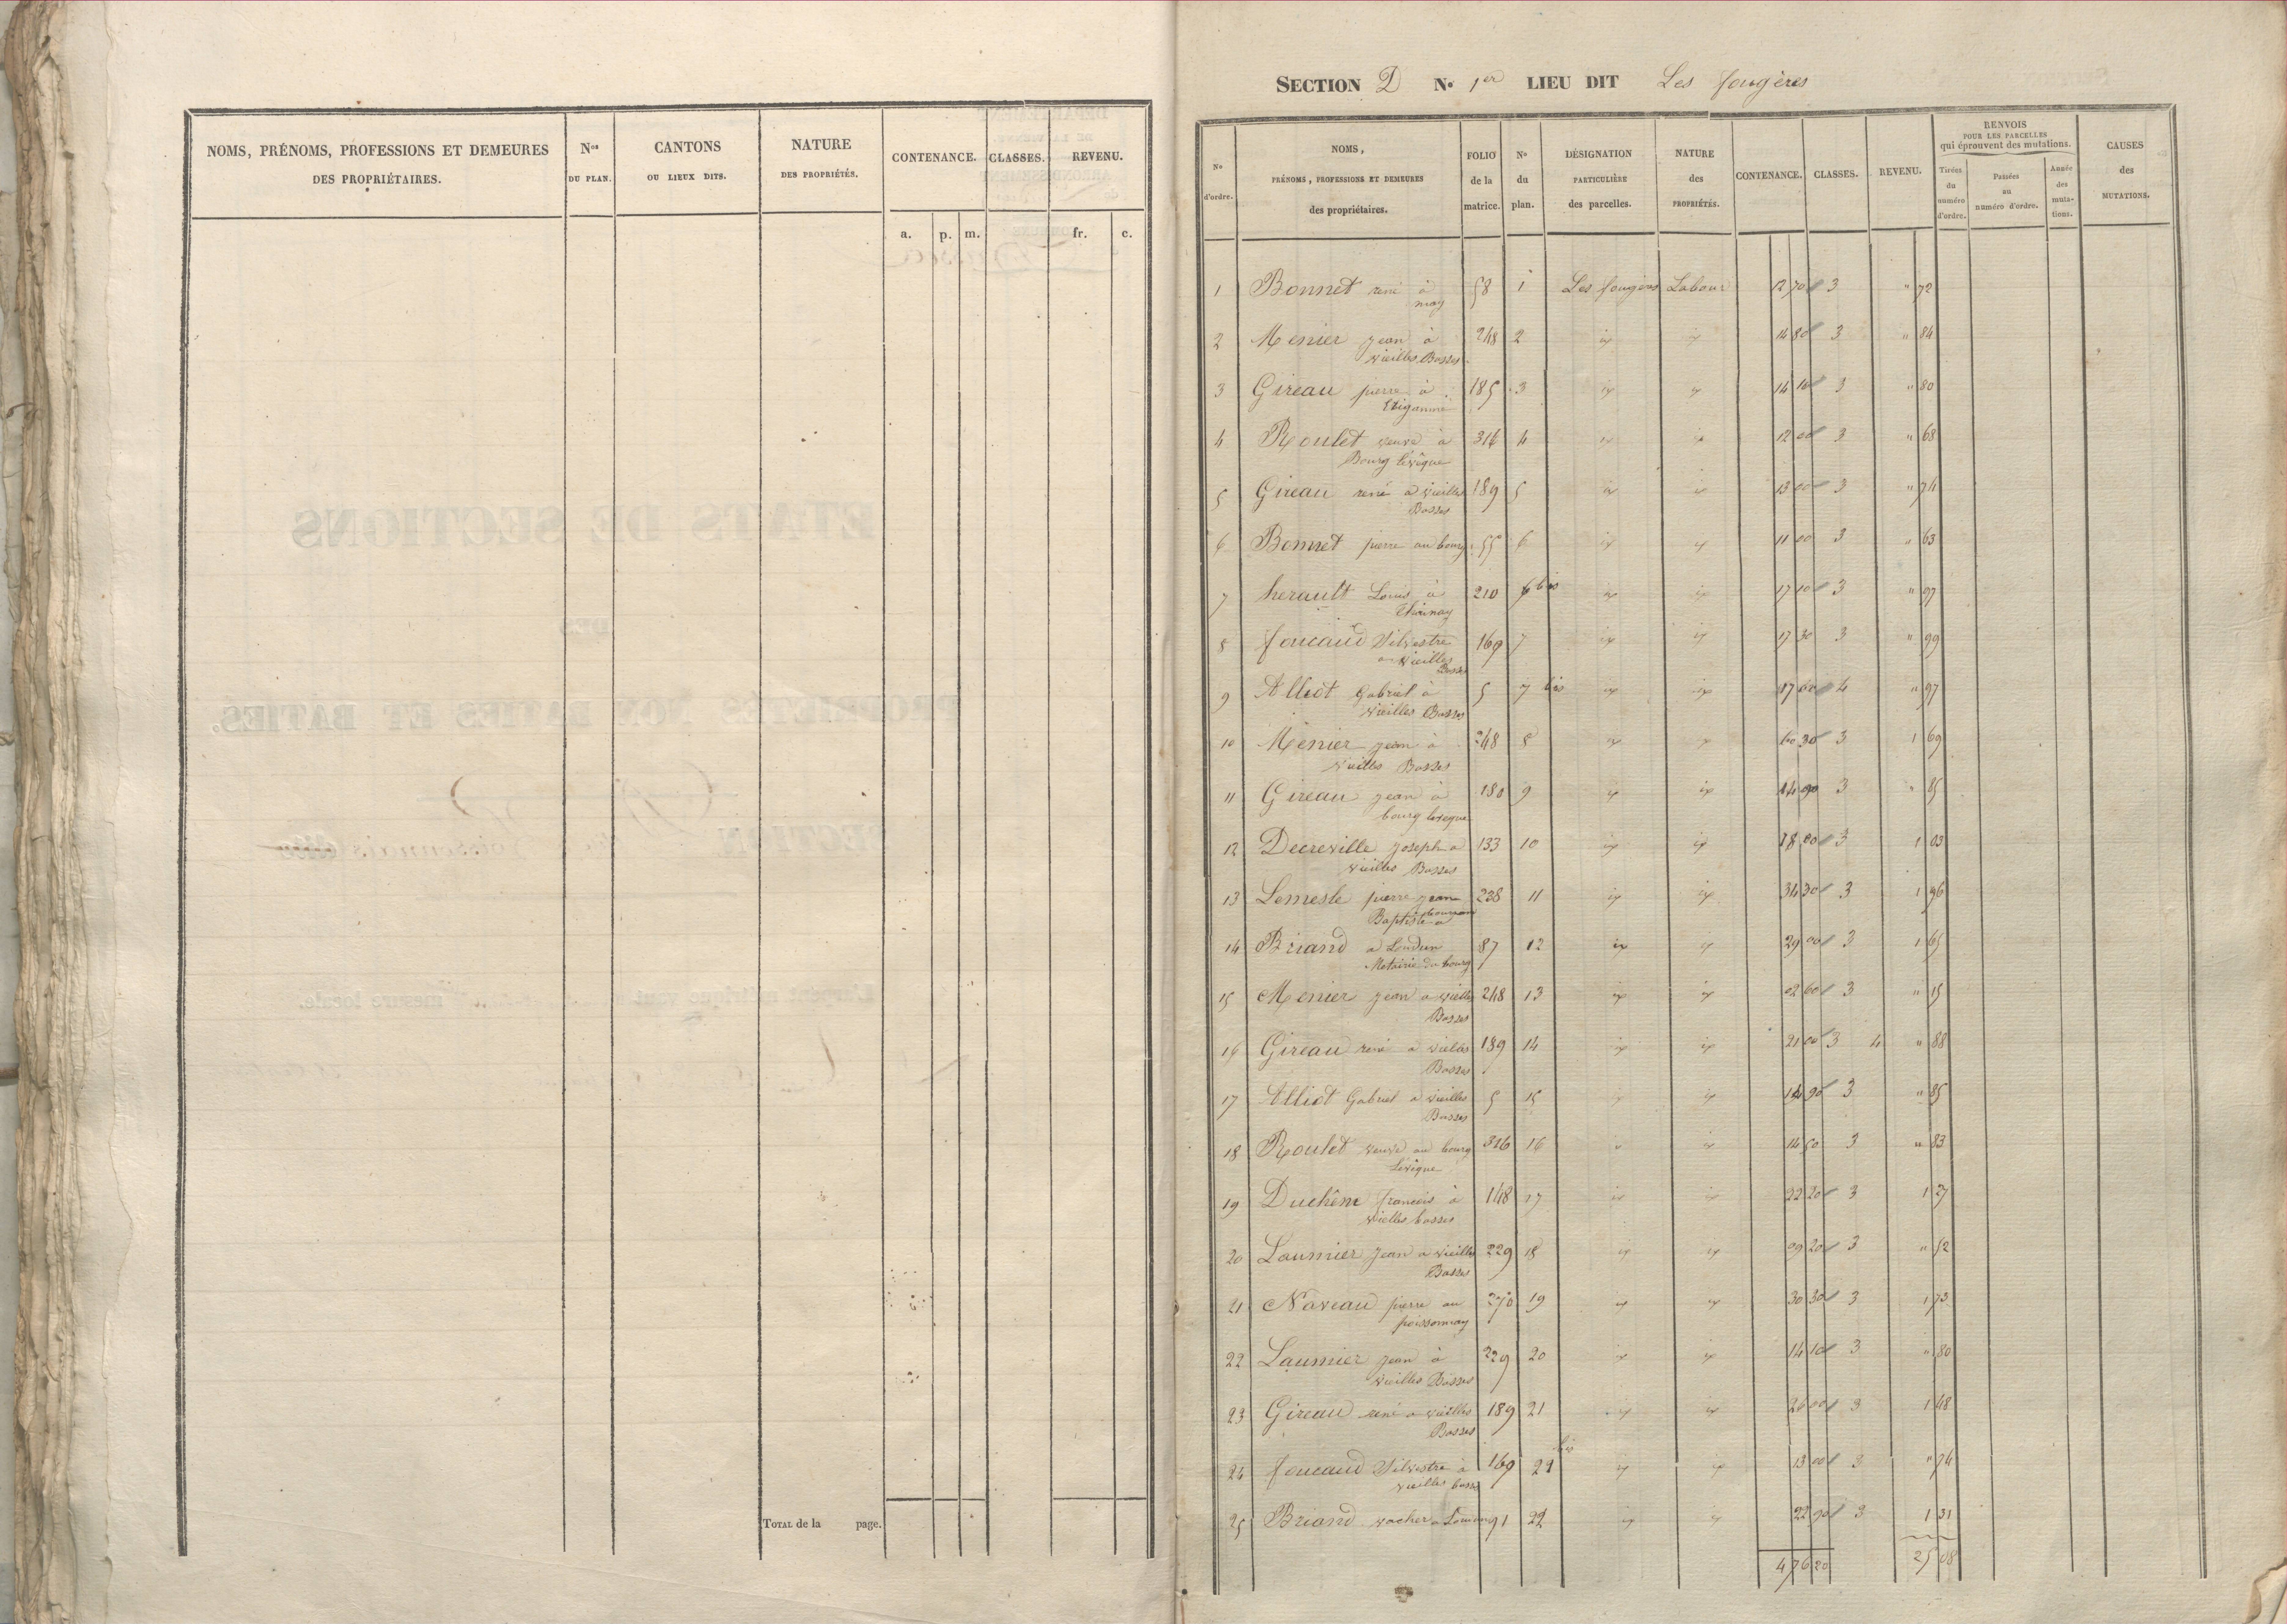 NOMS, PRÉNOMS, PROFESSIONS ET DEMEURES DES PROPRIÉTAIRES.
Nos DU PLAN.
CANTONS OU LIEUX DITS.
NATURE DES PROPRIÉTÉS.
CONTENANCE.
CLASSES.
REVENU.
a. p. m. fr. c.
TOTAL de la page.
SECTION D No 1er LIEU DIT Les fougères
No d'ordre.
NOMS, PRÉNOMS, PROFESSIONS ET DEMEURES des propriétaires.
FOLIO de la matrice.
No du plan.
DÉSIGNATION PARTICULIÈRE des parcelles.
NATURE des PROPRIÉTÉS.
CONTENANCE.
CLASSES.
REVENU.
RENVOIS POUR LES PARCELLES qui éprouvent des mutations.
Tirées du numéro d'ordre.
Passées au numéro d'ordre.
Année des mutations.
CAUSES des MUTATIONS.
1 Bonnet rené à 58 1 Les fougères Labour 12 70 3 " 72
may
2 Menier jean à 248 2 id id 14 80 3 " 84
vieilles Bosses
3 Gireau pierre à 185 3 id id 14 10 3 " 80
4 Roulet veuve à 316 4 id id 12 00 3 " 68
Bourg lévêque
5 Gireau rené a vieilles 189 5 id id 13 00 3 " 74
Bosses
6 Bonnet pierre au bourg 55 6 id id 11 00 3 " 63
7 herault Louis à 210 6 bis id id 17 10 3 " 97
8 foucaud Silvestre 169 7 id id 17 30 3 " 99
a vieilles
Bosses
9 Alliot Gabriel à 5 7 bis id id 17 60 4 " 97
vieilles Bosses
10 Menier jean à 248 8 id id 30 3 1 69
vieilles Bosses
11 Gireau jean à 180 9 id id 14 90 3 " 85
bourg leveque
12 Decreville joseph a 133 10 id id 18 00 3 1 03
vieilles Bosses
13 Lemesle pierre jean 238 11 id id 34 30 3 1 96
Baptiste a
14 Briand a Loudun 87 12 id id 29 00 3 1 65
Metairie du bourg
15 Menier jean a vieilles 248 13 id id 02 60 3 " 15
Bosses
16 Gireau rené a vielles 189 14 id id 21 00 3 4 " 88
Bosses
17 Alliot Gabriel a vieilles 5 15 id id 14 90 3 " 85
Bosses
18 Roulet veuve au bourg 316 16 id id 14 50 3 " 83
Lévêque
19 Duchêne francois à 148 17 id id 22 20 3 1 27
vielles bosses
20 Laumier jean a vieilles 229 18 id id 09 20 3 " 52
Bosses
21 Naveau pierre au 270 19 id id 30 30 3 1 73
poissonnay
22 Laumier jean à 229 20 id id 14 10 3 " 80
vieilles Bosses
23 Gireau rené a vieilles 189 21 id id 26 00 3 1 48
Bosses
24 foucaud Silvestre à 169 21 bis id id 13 00 3 " 74
vieilles bosses
25 Briand 91 22 id id 22 90 3 1 31
4 76 20 25 08